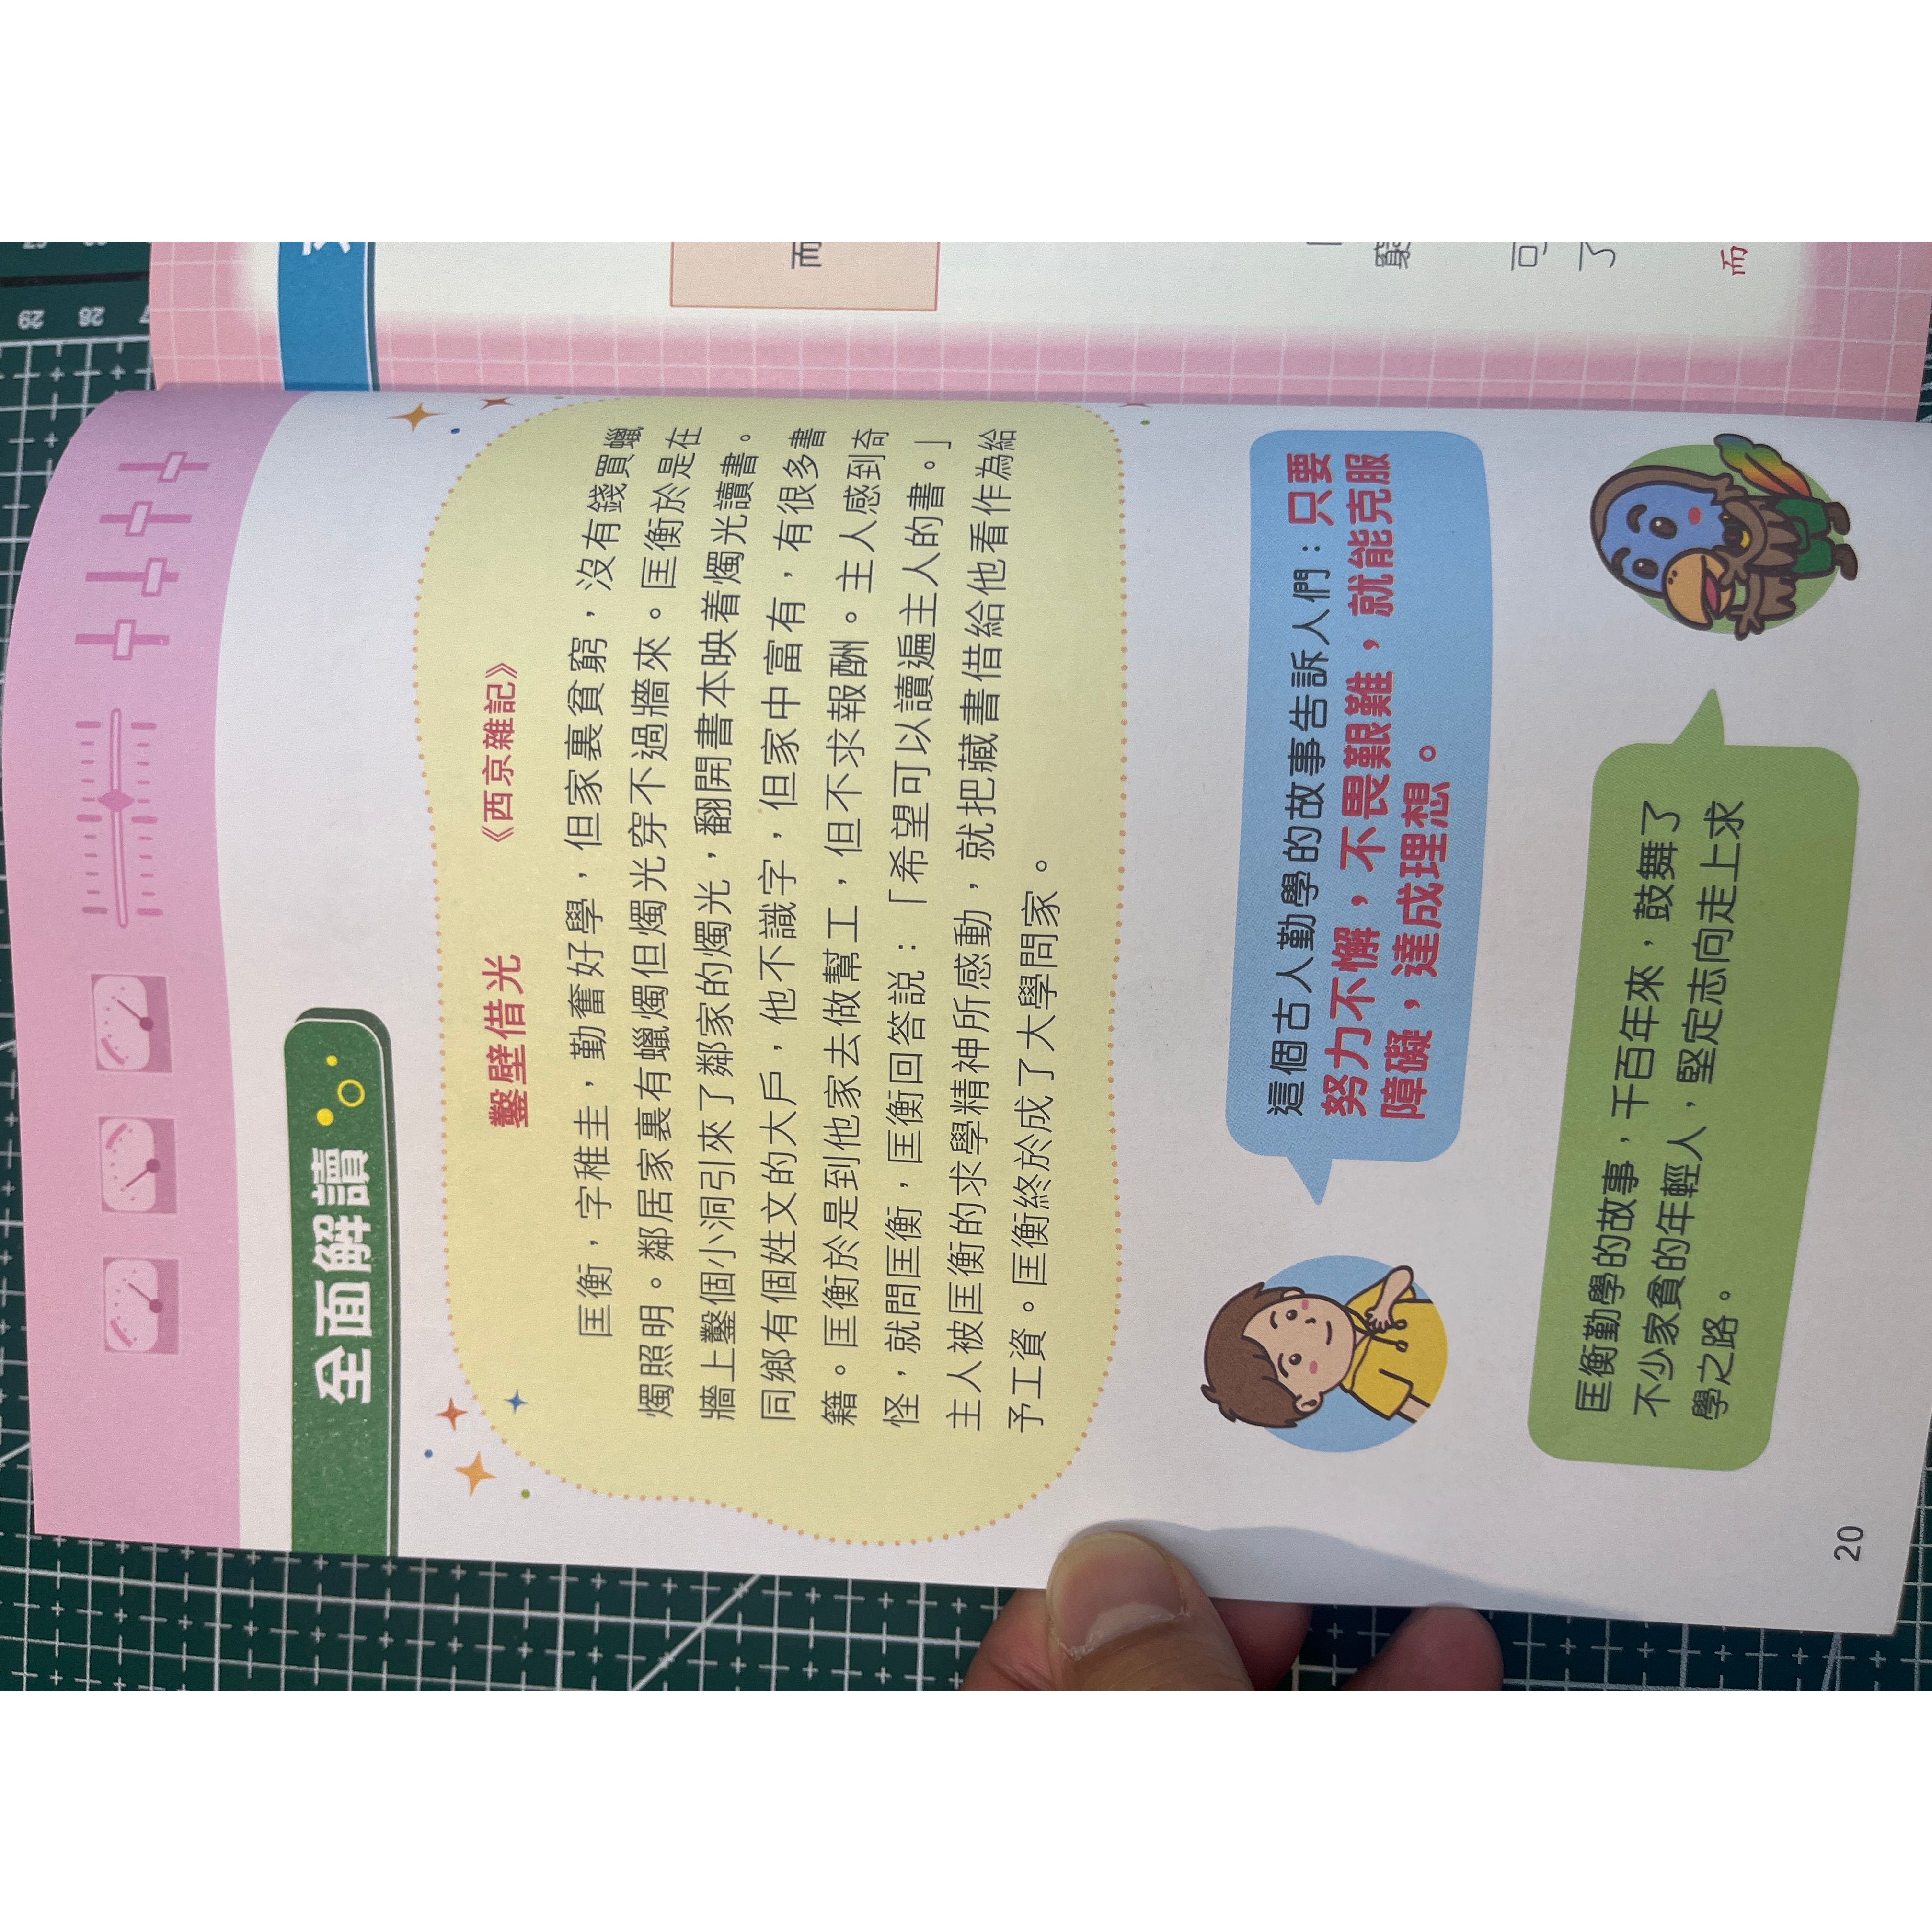 全面解讀
鑿壁借光 《西京雜記》
匡衡，字稚圭，勤奮好學，但家裏貧窮，沒有錢買蠟
燭照明。鄰居家裏有蠟燭但燭光穿不過牆來。匡衡於是在
牆上鑿個小洞引來了鄰家的燭光，翻開書本映着燭光讀書。
同鄉有個姓文的大戶，他不識字，但家中富有，有很多書
籍。匡衡於是到他家去做幫工，但不求報酬。主人感到奇
怪，就問匡衡，匡衡回答説：「希望可以讀遍主人的書。」
主人被匡衡的求學精神所感動，就把藏書借給他看作為給
予工資。匡衡終於成了大學問家。
這個古人勤學的故事告訴人們：只要
努力不懈，不畏艱難，就能克服
障礙，達成理想。
匡衡勤學的故事，千百年來，鼓舞了
不少家貧的年輕人，堅定志向走上求
學之路。
20
而
窮
可
了
而
29
28